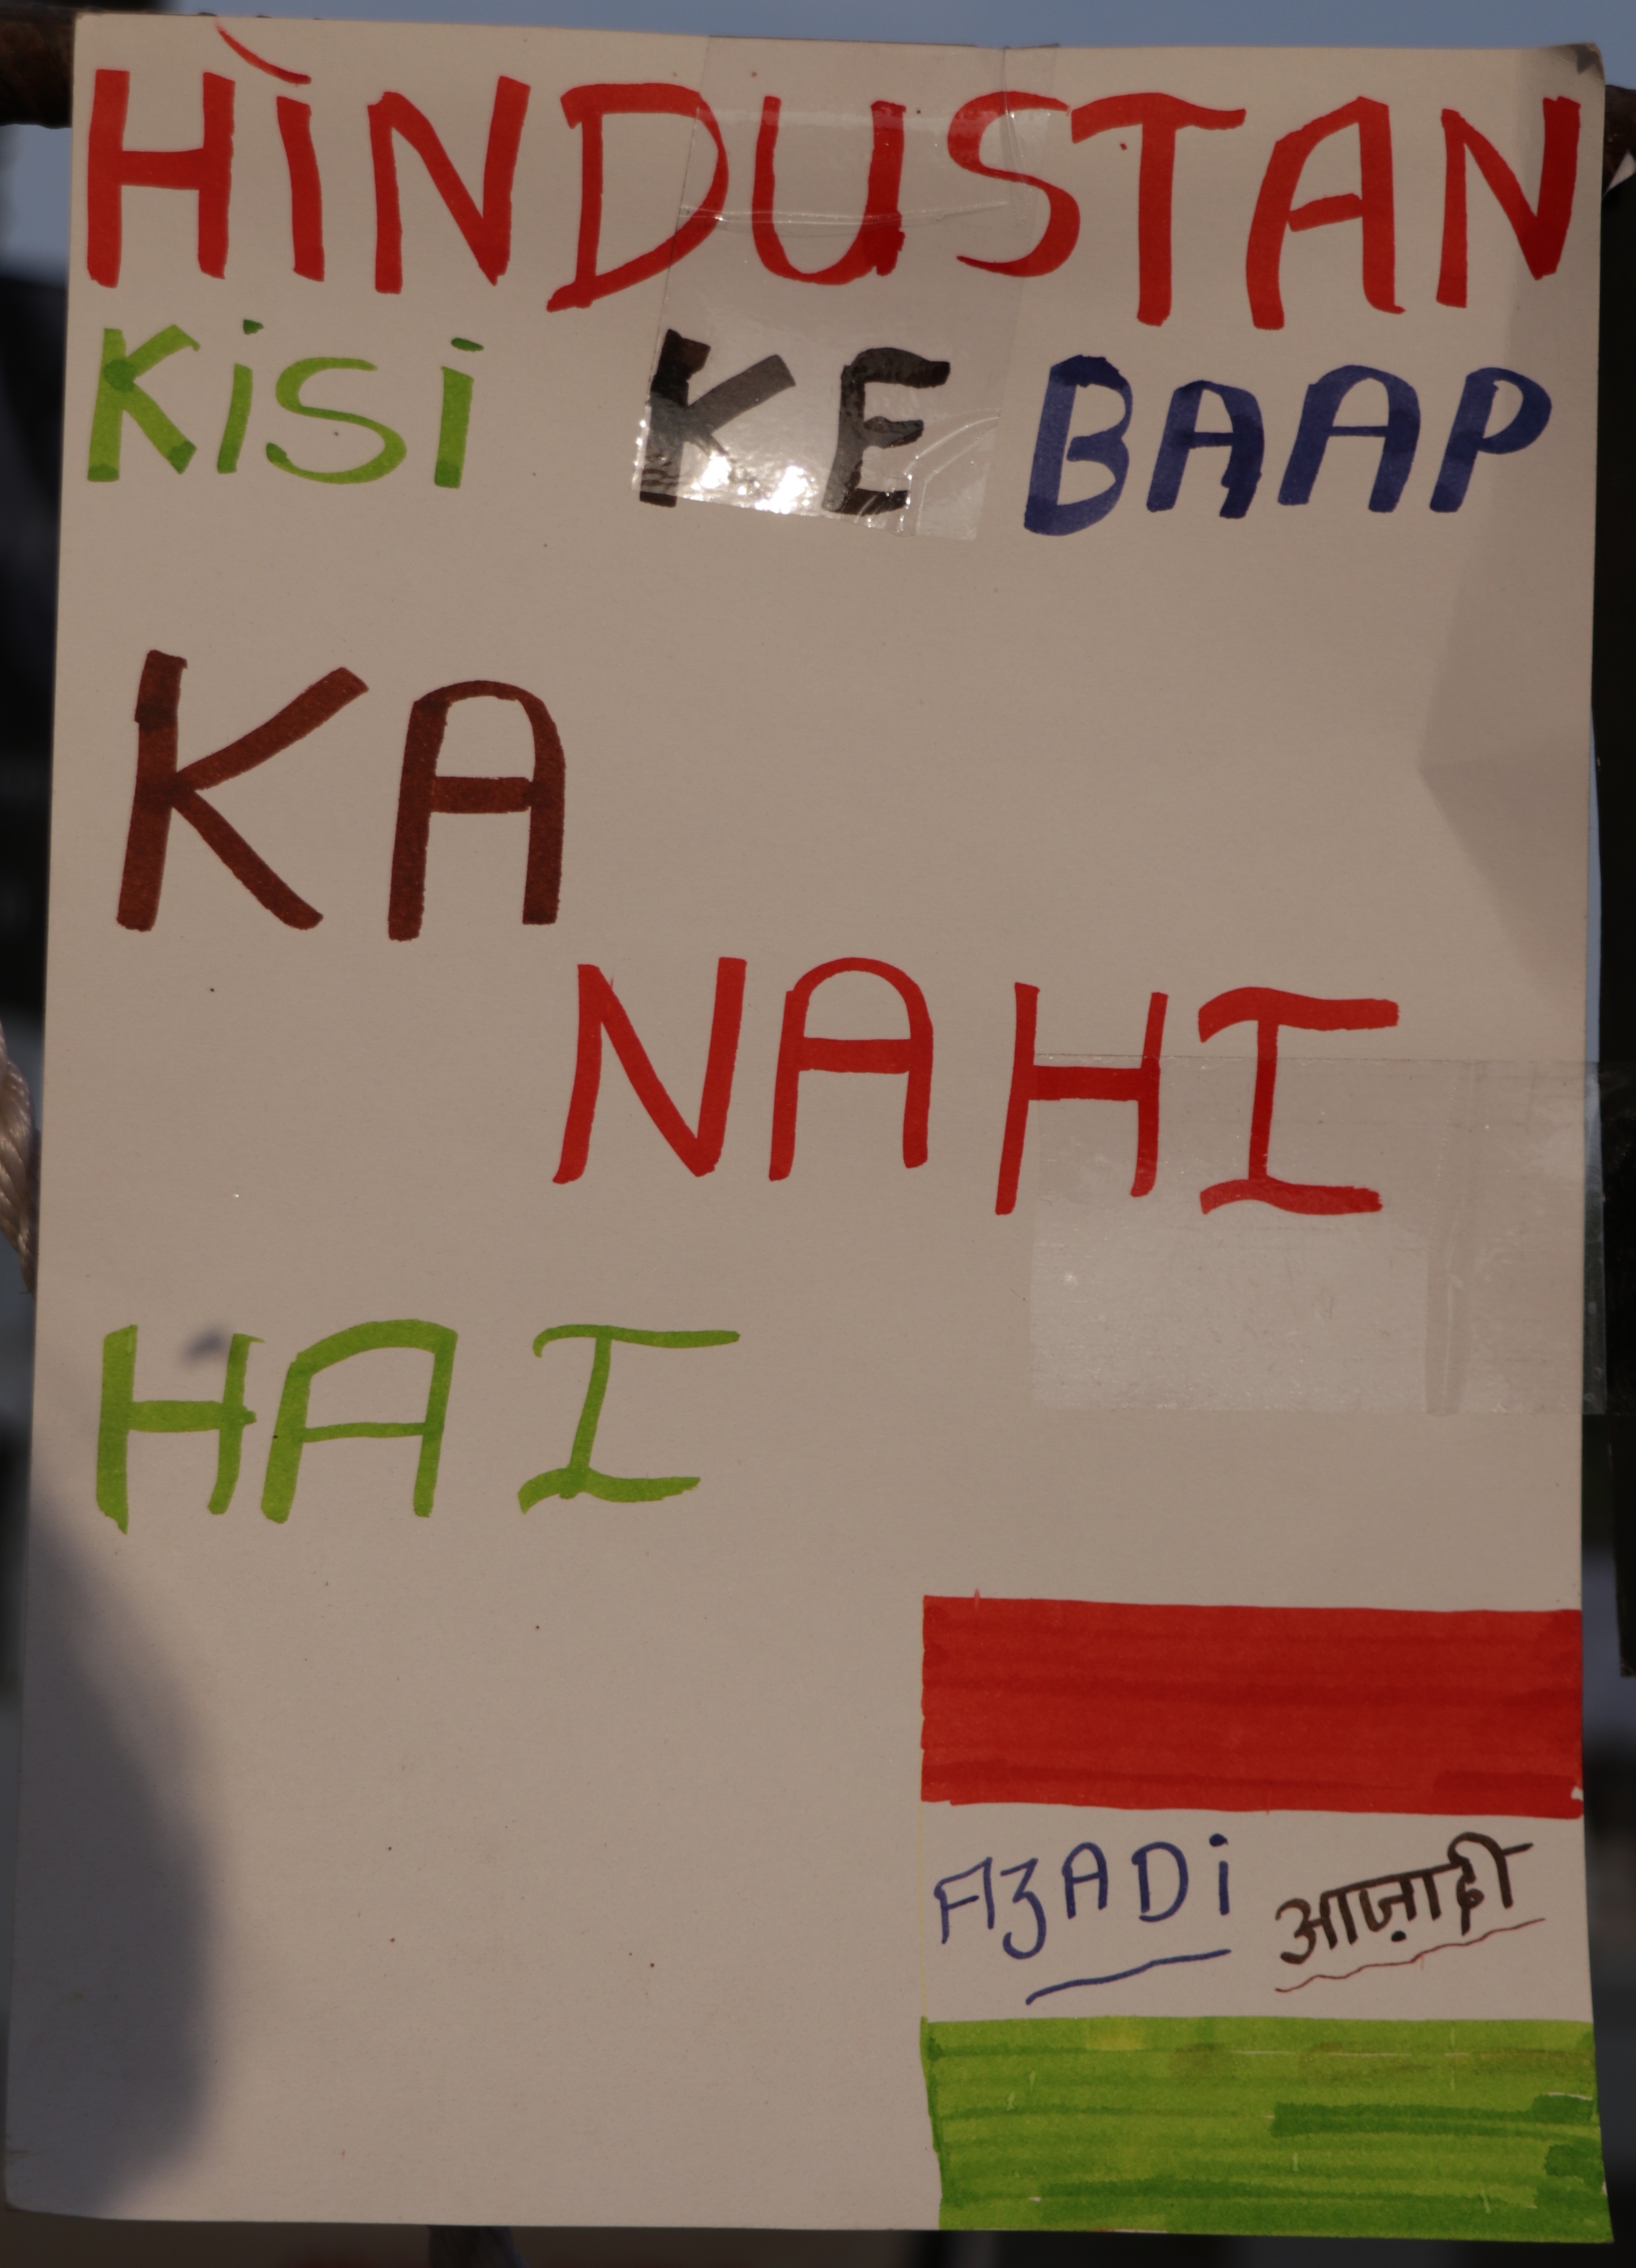 HINDUSTAN
KISI KE BAAP
KA
NAHI
HAI
AZADI आज़ादी